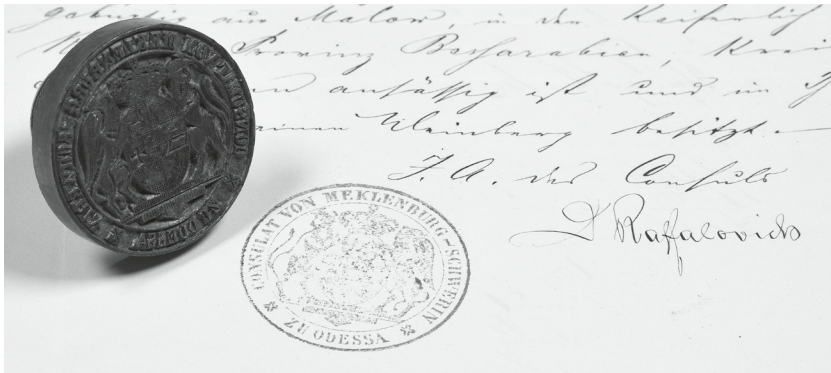 gebürtig aus Malow, in der Kaiserlich
Provinz Bessarabien, Krei
ansässig ist und im
einen Weinberg besitzt.
I. A. des Consuls
D Rafalovich
CONSULAT VON MEKLENBURG-SCHWERIN
ZU ODESSA